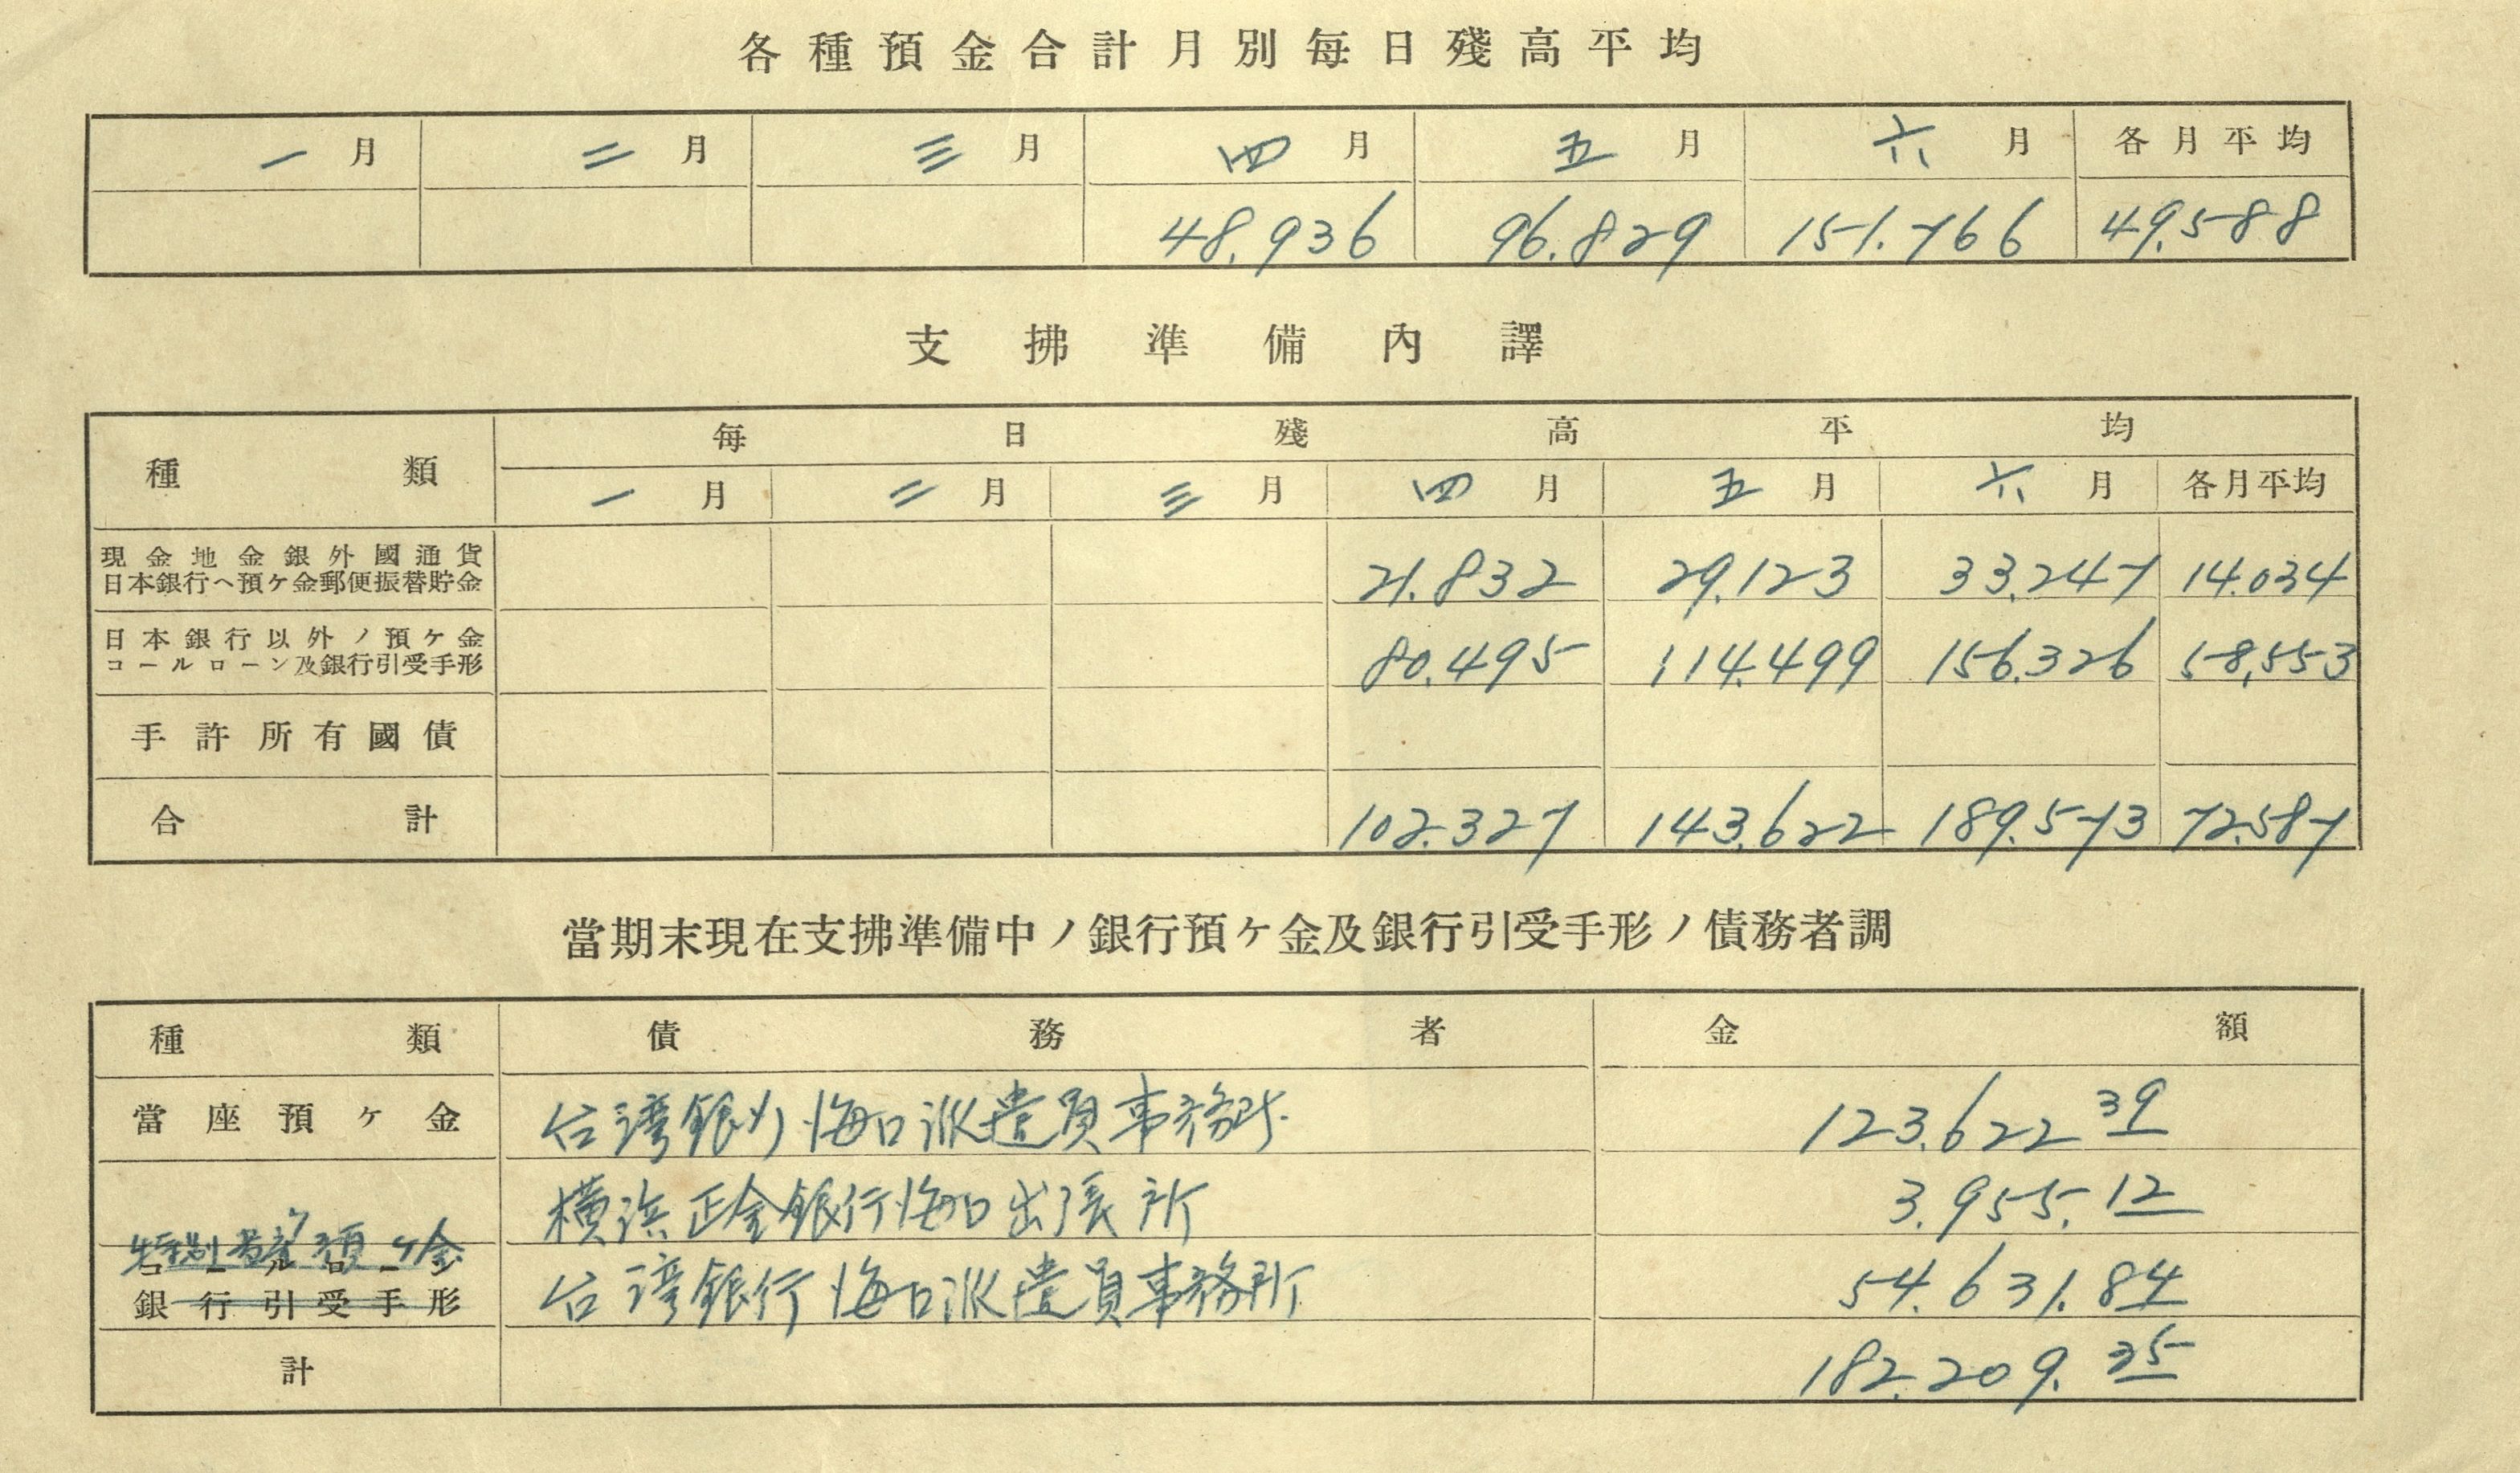 各種預金合計月別每日殘高平均
一月 二月 三月 四月 五月 六月 各月平均
48.936 96.829 151.766 49.588
支拂準備內譯
種類 每日殘高平均
一月 二月 三月 四月 五月 六月 各月平均
現金地金銀外國通貨
日本銀行ヘ預ケ金郵便振替貯金 21.832 29.123 33.247 14.034
日本銀行以外ノ預ケ金
コールローン及銀行引受手形 80.495 114.499 156.326 58,553
手許所有國債
合計 102.327 143.622 189.573 72.587
當期末現在支拂準備中ノ銀行預ケ金及銀行引受手形ノ債務者調
種類 債務者 金額
當座預ケ金 台湾銀行海口派遣員事務所 123.622 39
横浜正金銀行海口出張所 3.955.12
特別當座預ケ金
コールローン
銀行引受手形 台湾銀行海口派遣員事務所 54.631.84
計 182.209.35